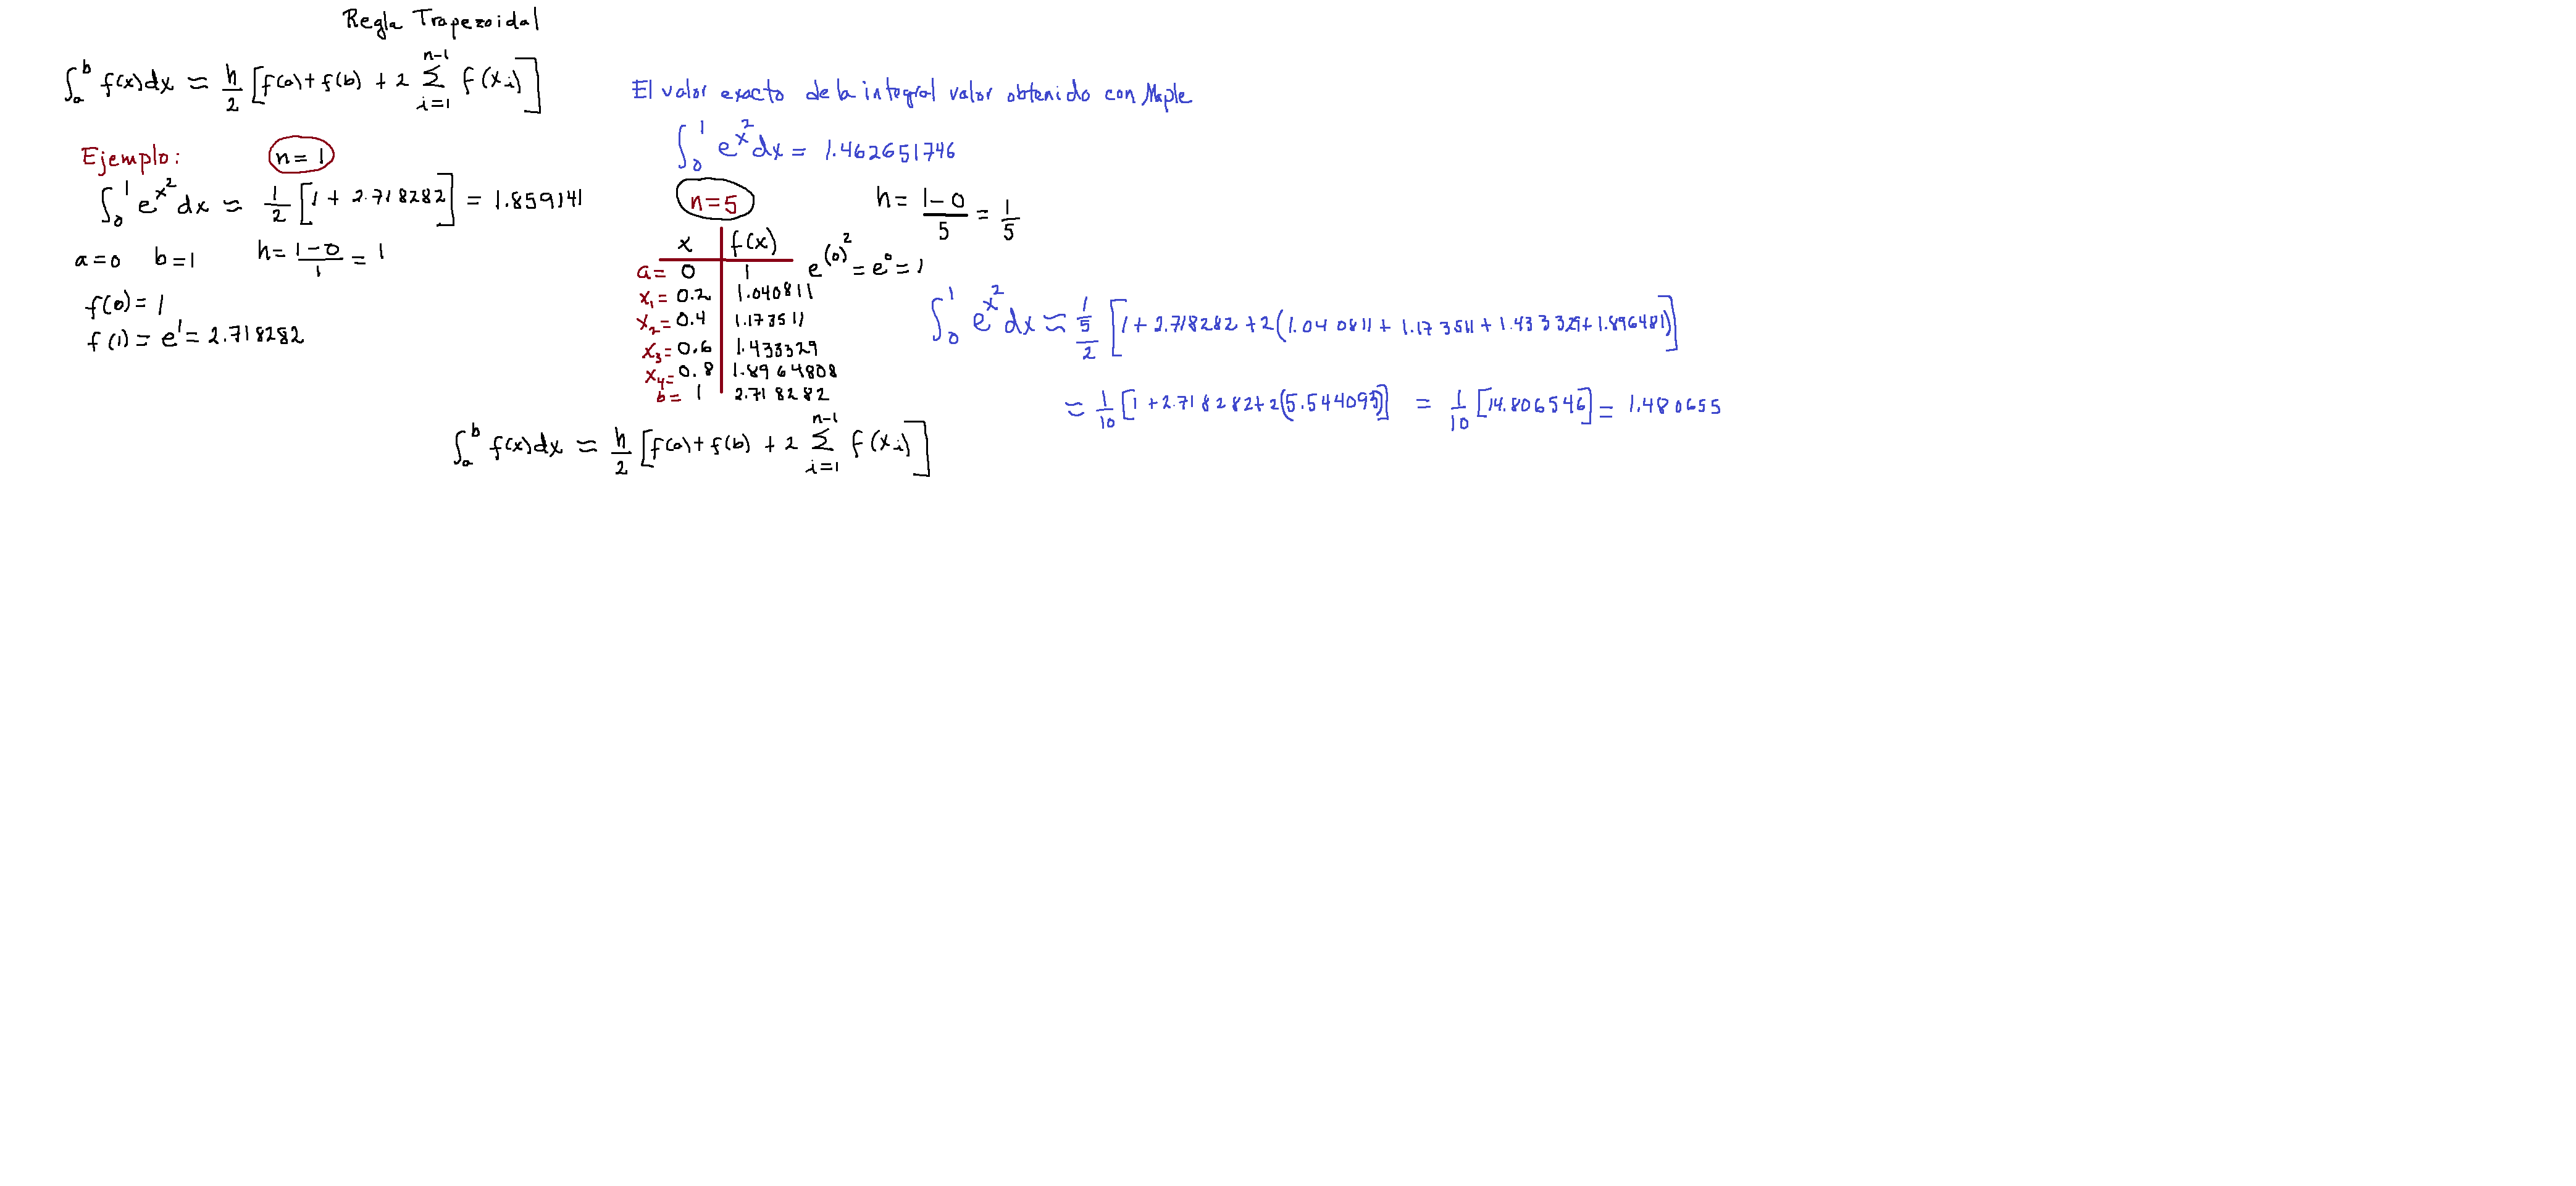 Regla Trapezoidal
∫_a^b f(x)dx ≈ h/2 [f(a) + f(b) + 2 Σ_{i=1}^{n-1} f(x_i)]
Ejemplo: n = 1
∫_0^1 e^{x^2} dx ≈ 1/2 [1 + 2.718282] = 1.859141
a = 0 b = 1 h = (1-0)/1 = 1
f(0) = 1
f(1) = e^1 = 2.718282
El valor exacto de la integral valor obtenido con Maple
∫_0^1 e^{x^2} dx = 1.462651746
n = 5 h = (1-0)/5 = 1/5
x f(x)
a = 0 1 e^{(0)^2} = e^0 = 1
x_1 = 0.2 1.040811
x_2 = 0.4 1.173511
x_3 = 0.6 1.433329
x_4 = 0.8 1.8964808
b = 1 2.718282
∫_0^1 e^{x^2} dx ≈ (1/5)/2 [1 + 2.718282 + 2(1.040811 + 1.173511 + 1.433329 + 1.896481)]
≈ 1/10 [1 + 2.718282 + 2(5.544093)] = 1/10 [14.806546] = 1.480655
∫_a^b f(x)dx ≈ h/2 [f(a) + f(b) + 2 Σ_{i=1}^{n-1} f(x_i)]